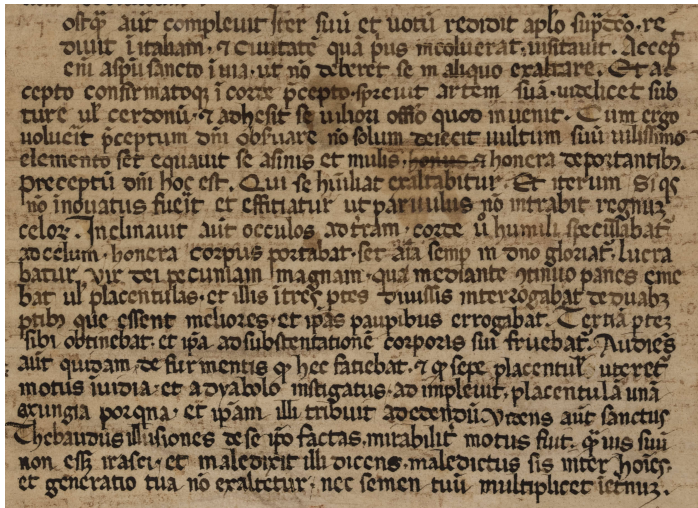 ostq̃ aũt compleuit iter suũ et uotũ reddidit aplo sup̃dco. re
diuit ĩ italiam. ⁊ ciuitatẽ quã p̃us incoluerat. uisitauit. Accep
em̃ a sp̃u sancto ĩ uia. ut nõ deberet se in aliquo exaltare. Et ac
cepto confirmatoq; ĩ corde p̃cepto. spreuit artem suã. uidelicet sub
ture ul' cerdonũ. ⁊ adhesit se uiliori offitio quod inuenit. Cum ergo
voluerit p̃ceptum dñi obseruare nõ solum deiecit uultum suũ uilissimo
elemento set equauit se asinis et mulis. honus ⁊ honera deportantib;
Preceptũ dñi hoc est. Qui se humiliat exaltabitur. Et iterum Si q̃s
nõ inouatus fuerit et effitiatur ut paruulus nõ intrabit regnuz
celoꝝ. Inclinauit aũt occulos ad trãm. corde ũ humili speculabat̃
ad celum. honera corpus portabat. set aĩa semp in dño gloriat̃. lucra
batur uir dei pecuniam magnam. qua mediante continuo panes eme
bat ul' placentulas. et illis ĩ tres p̃tes diuisis interrogabat de duab;
p̃tib; que essent meliores. et ip̃as paupibus errogabat. Tertiã p̃tez
sibi obtinebat. et ip̃a ad substentationẽ corporis sui fruebat̃. Audiẽs
aũt quidam de furmentis q̃ hec fatiebat. ⁊ q̃ sepe placentul' uteret̃
motus ĩuidia. et a dyabolo instigatus. adimpleuit. placentulã unã
axungia porzna. et ip̃am illi tribuit ad edendũ. Videns aũt sanctus
Thebaudus illusiones de se ip̃o factas. mirabilit̃ motus fuit. q̃muis suũ
non ess; irasci. et maledixit illi dicens. maledictus sis inter hoĩes.
et generatio tua nõ exaltetur. nec semen tuũ multiplicet ĩ et̃nuz.